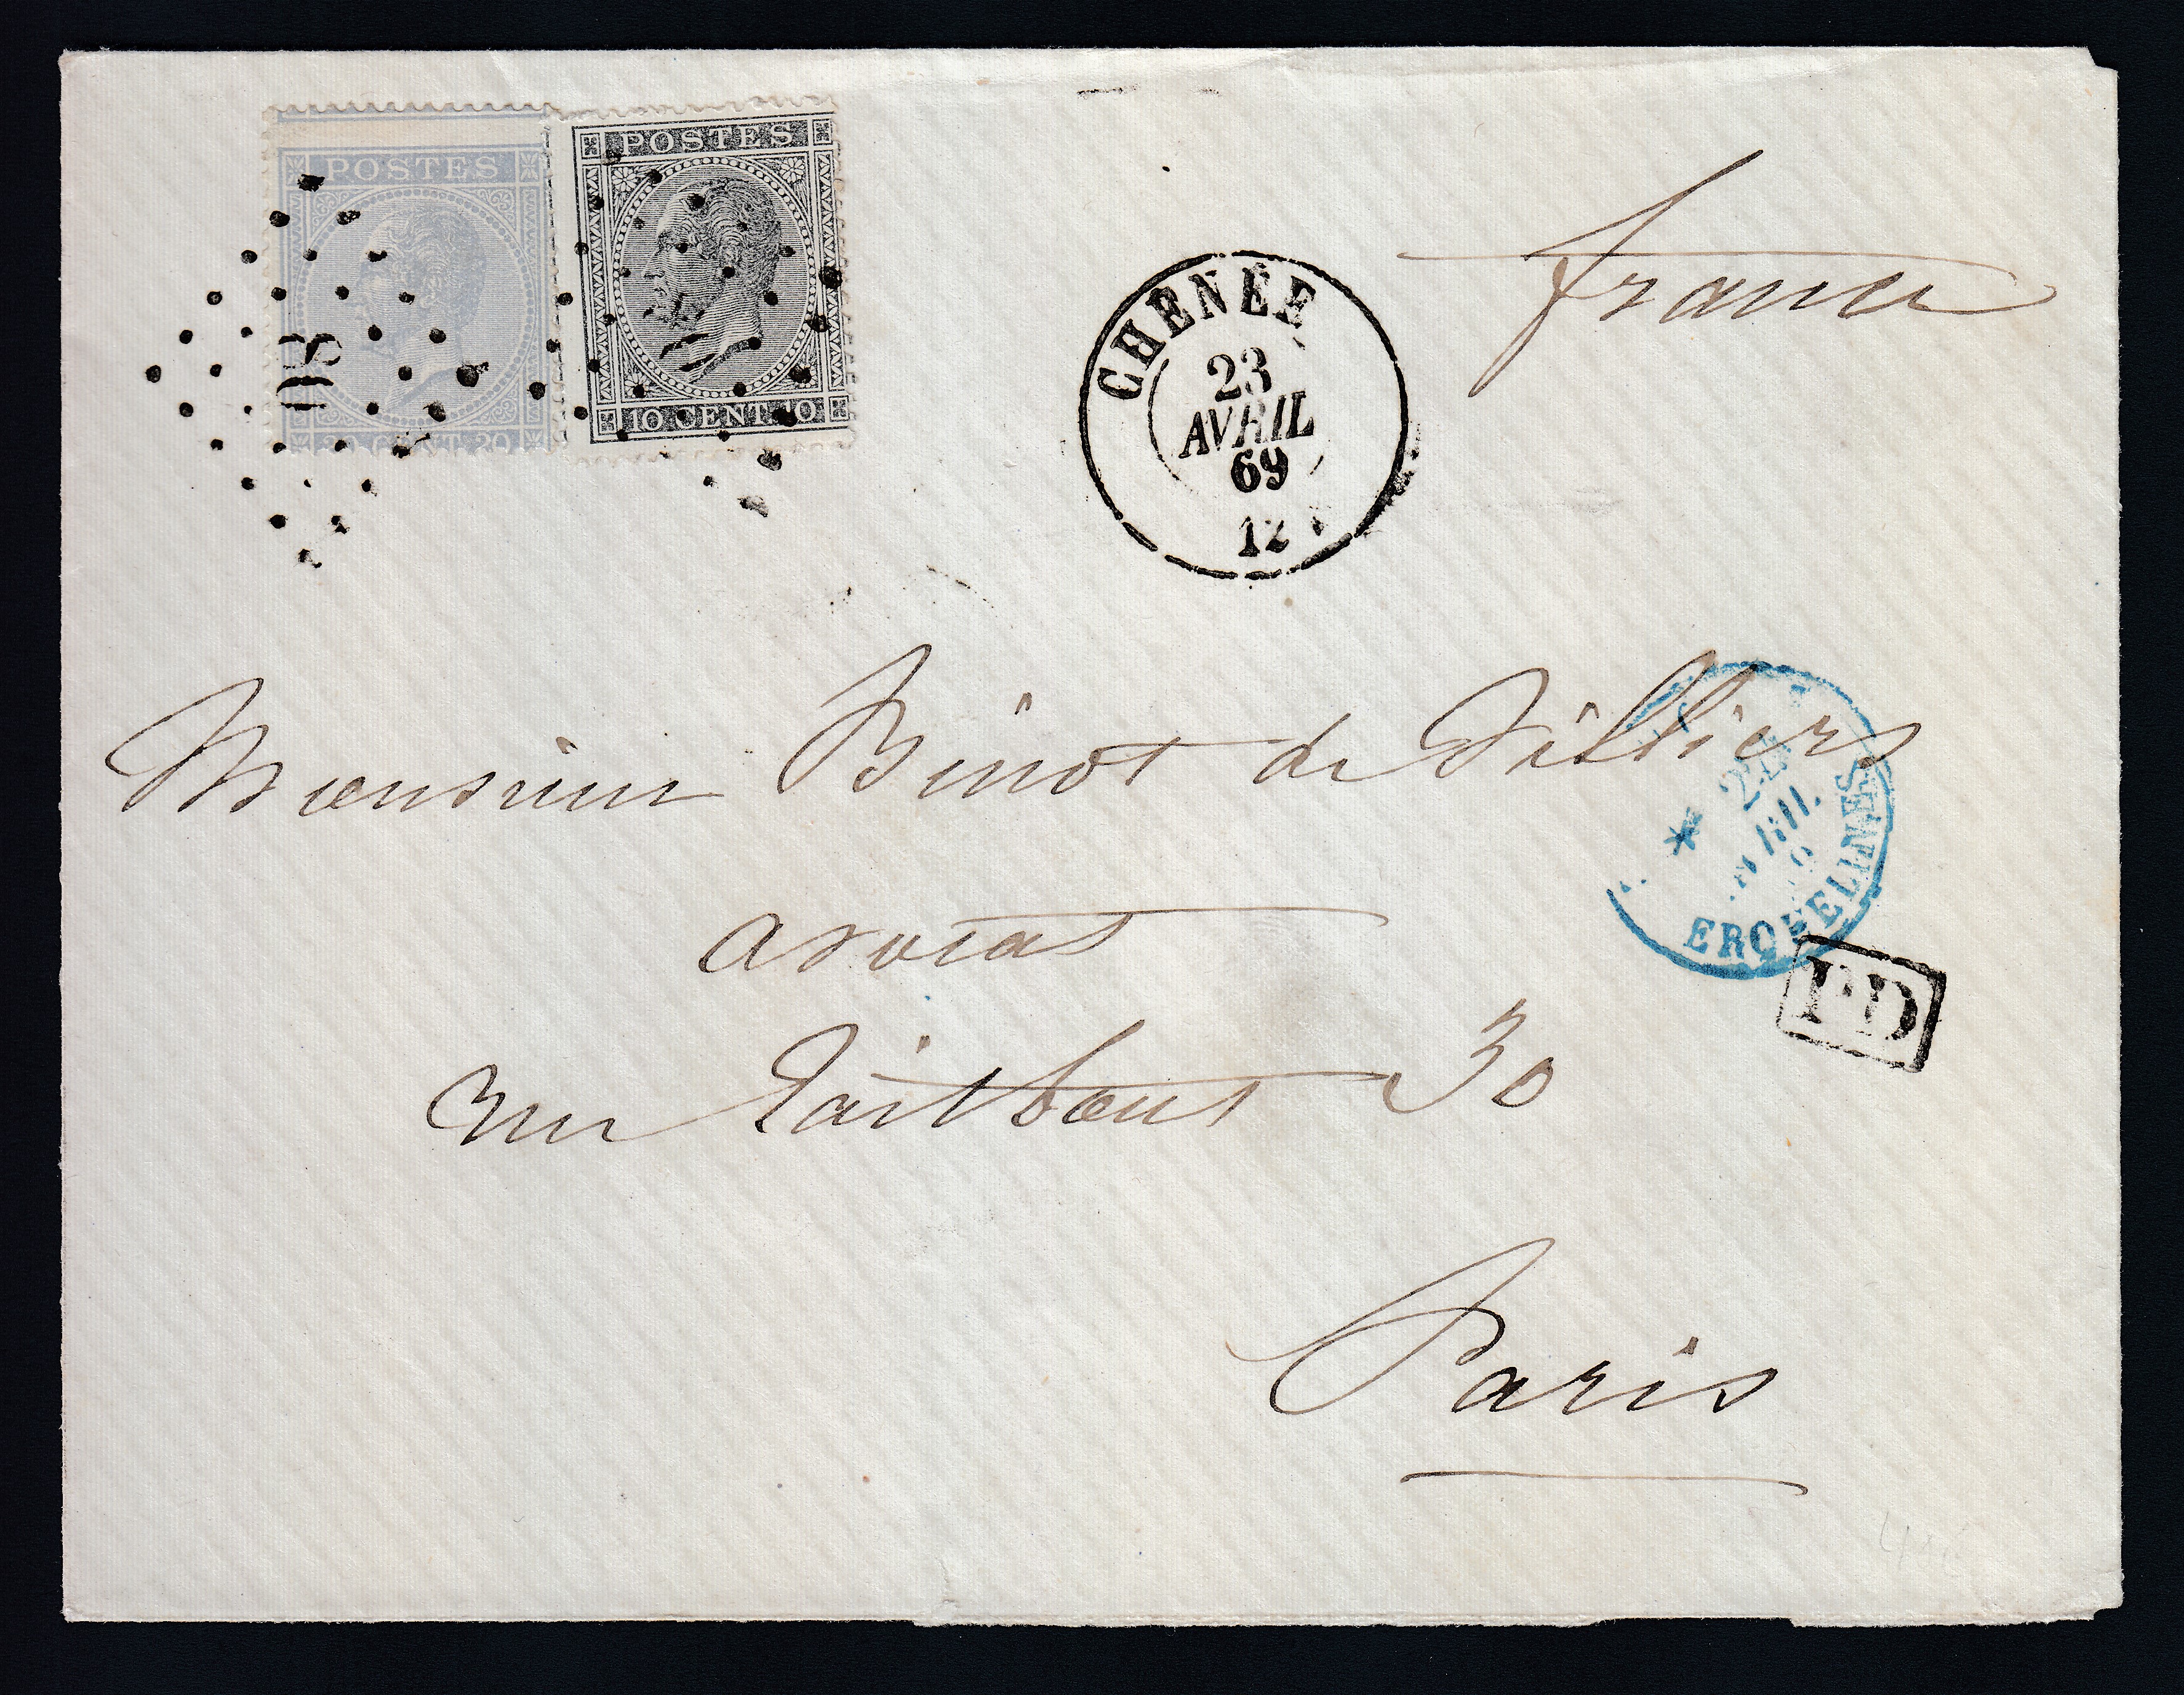 POSTES
POSTES
20 CENT. 20
10 CENT. 10
CHÊNÉE
23
AVRIL
69
12
france
Monsieur Binot de Villiers
avocat
rue Taitbout 30
Paris
24
AVRIL
ERQUELINES
PD